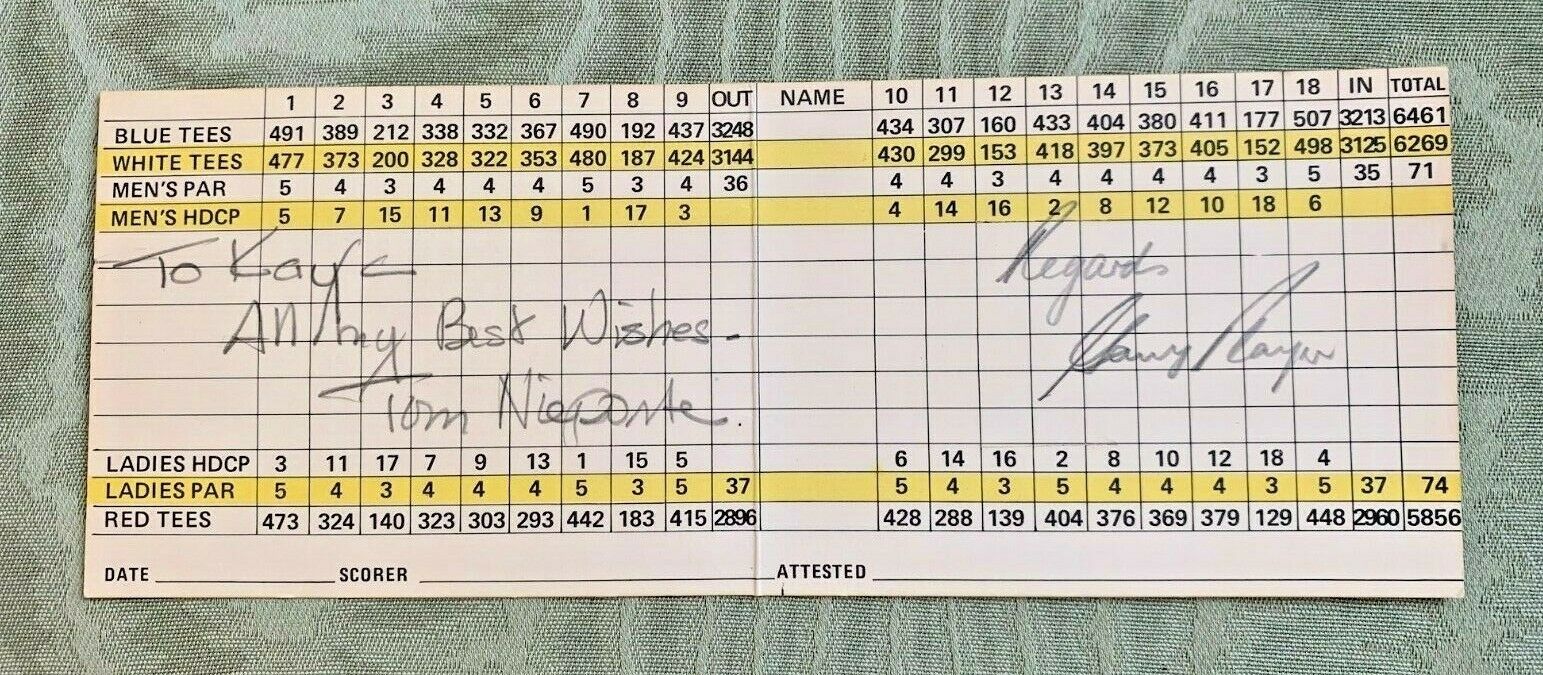 1 2 3 4 5 6 7 8 9 OUT NAME 10 11 12 13 14 15 16 17 18 IN TOTAL
BLUE TEES 491 389 212 338 332 367 490 192 437 3248 434 307 160 433 404 380 411 177 507 3213 6461
WHITE TEES 477 373 200 328 322 353 480 187 424 3144 430 299 153 418 397 373 405 152 498 3125 6269
MEN'S PAR 5 4 3 4 4 4 5 3 4 36 4 4 3 4 4 4 4 3 5 35 71
MEN'S HDCP 5 7 15 11 13 9 1 17 3 4 14 16 2 8 12 10 18 6
To Kaye
All My Best Wishes -
Tom Nieporte.
Regards
Gary Player
LADIES HDCP 3 11 17 7 9 13 1 15 5 6 14 16 2 8 10 12 18 4
LADIES PAR 5 4 3 4 4 4 5 3 5 37 5 4 3 5 4 4 4 3 5 37 74
RED TEES 473 324 140 323 303 293 442 183 415 2896 428 288 139 404 376 369 379 129 448 2960 5856
DATE SCORER ATTESTED